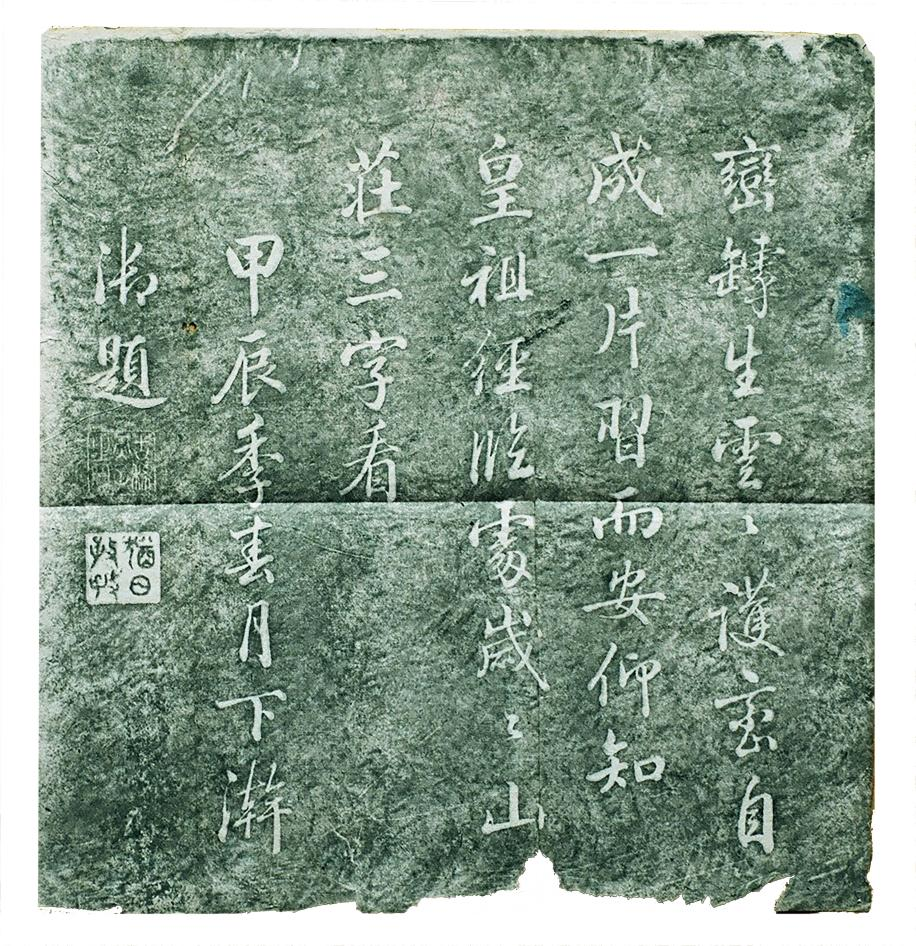 巒罅生雲〻護巒自
成一片習而安仰知
皇祖經臨處歲〻山
莊三字看
甲辰季春月下澣
御題
猶日孜孜